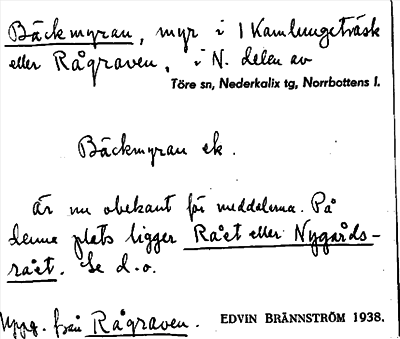 Bäckmyran, myr i 1 Kamlungeträsk
eller Rågraven, i N. delen av
Töre sn, Nederkalix tg, Norrbottens l.
Bäckmyran ek.
är nu obekant för meddelarna. På
denna plats ligger Raet eller Nygårds-
raet. Se d.o.
Uppg. från Rågraven.
EDVIN BRÄNNSTRÖM 1938.